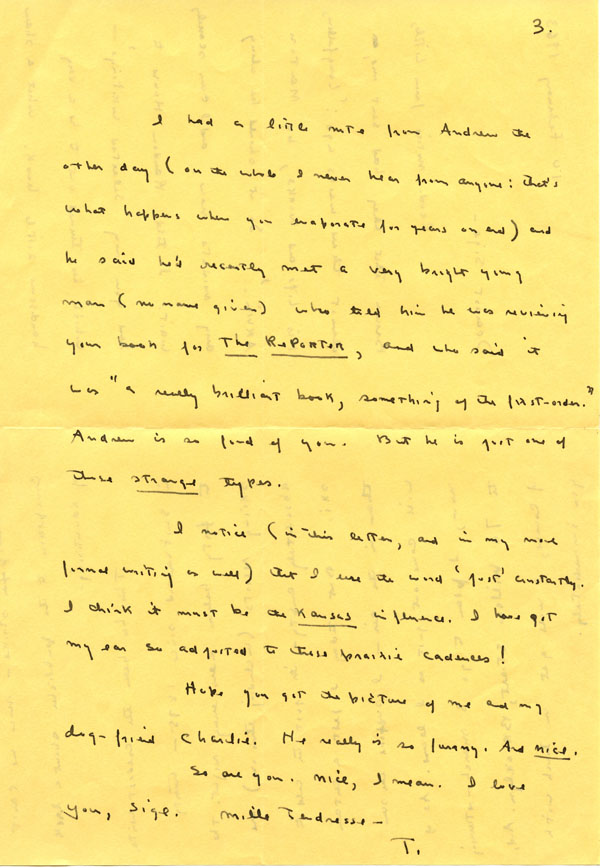 3.
I had a little note from Andrew the
other day (on the whole I never hear from anyone: that's
what happens when you evaporate for years on end) and
he said he'd recently met a very bright young
man (no name given) who told him he was reviewing
your book for The RePORTER, and who said it
was "a really brilliant book, something of the first-order."
Andrew is so fond of you. But he is just one of
those strange types.
I notice (in this letter, and in my more
formal writing as well) that I use the word 'just' constantly.
I think it must be the Kansas influence. I have got
my ear so adjusted to these prairie cadences!
Hope you got the picture of me and my
dog-friend Charlie. He really is so funny. And nice.
So are you. Nice, I mean. I love
you, Sige. Mille Tendresse—
T.